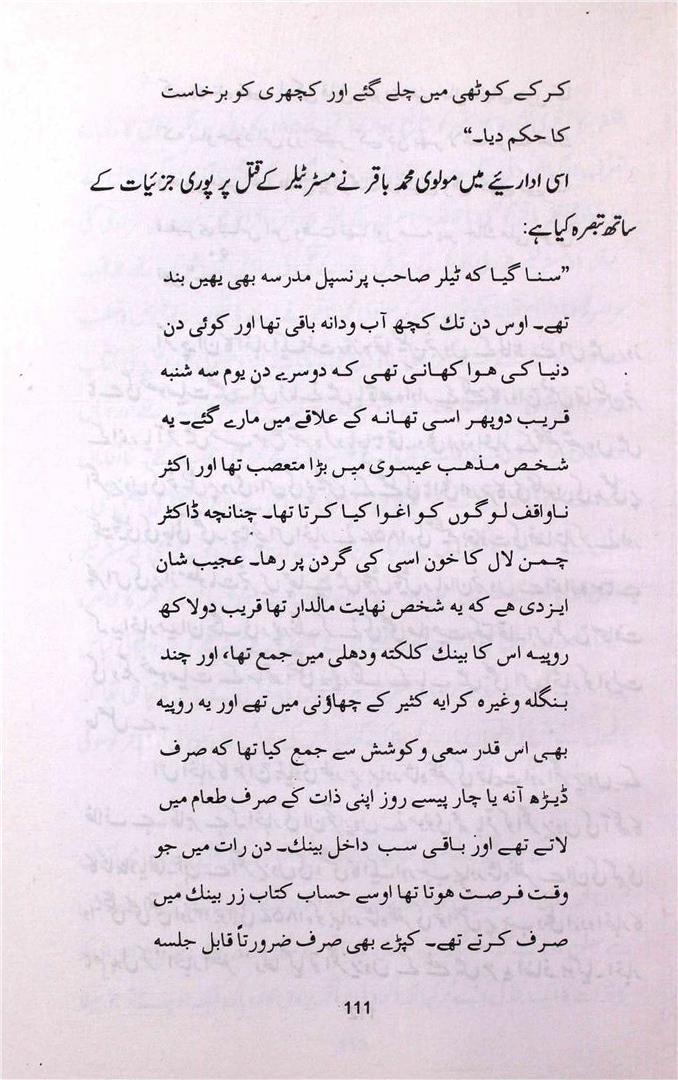 کر کے کوٹھی میں چلے گئے اور کچھری کو برخاست
کا حکم دیا۔“
اسی اداریئے میں مولوی محمد باقر نے مسٹر ٹیلر کے قتل پر پوری جزئیات کے
ساتھ تبصرہ کیا ہے:
”سنا گیا که ٹیلر صاحب پرنسپل مدرسه بھی یھیں بند
تھے۔ اوس دن تك کچھ آب ودانه باقی تھا اور کوئی دن
دنیا کی ھوا کھانی تھی که دوسرے دن یوم سه شنبه
قریب دوپھر اسی تھانه کے علاقے میں مارے گئے۔ یه
شخص مذھب عیسوی میں بڑا متعصب تھا اور اکثر
ناواقف لوگوں کو اغوا کیا کرتا تھا۔ چنانچه ڈاکٹر
چمن لال کا خون اسی کی گردن پر رھا۔ عجیب شان
ایزدی ھے که یه شخص نھایت مالدار تھا قریب دولاکھ
روپیه اس کا بینك کلکته ودھلی میں جمع تھا، اور چند
بنگله وغیرہ کرایه کثیر کے چھاؤنی میں تھے اور یه روپیه
بھی اس قدر سعی وکوشش سے جمع کیا تھا که صرف
ڈیڑھ آنه یا چار پیسے روز اپنی ذات کے صرف طعام میں
لاتے تھے اور باقی سب داخل بینك۔ دن رات میں جو
وقت فرصت ھوتا تھا اوسے حساب کتاب زر بینك میں
صرف کرتے تھے۔ کپڑے بھی صرف ضرورتاً قابل جلسه
111